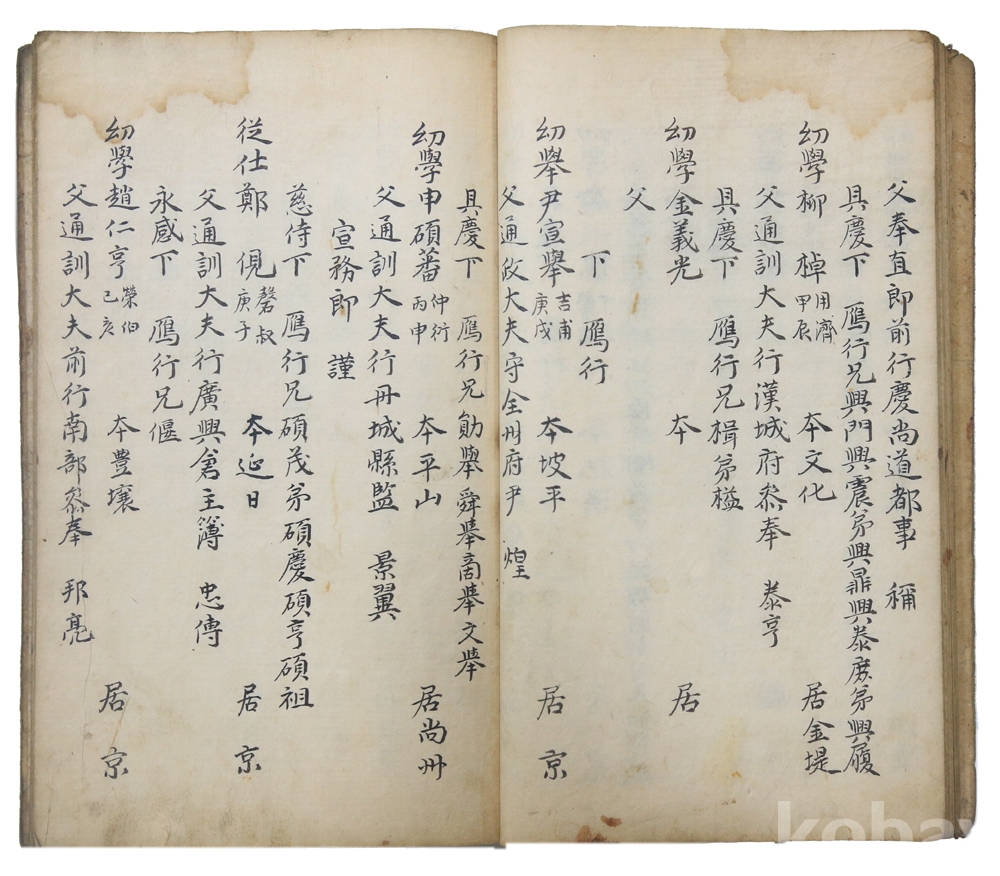 父奉直郎前行慶尚道都事 稱
具慶下 鴈行兄興門興震弟興鼎興泰庶弟興履
幼學柳 㯖 用濟 甲辰 本文化 居金堤
父通訓大夫行漢城府叅奉 泰亨
具慶下 鴈行兄楫弟㮂
幼學金義光 本 居
父
下 鴈行
幼學尹宣擧 吉甫 庚戌 本坡平 居京
父通政大夫守全州府尹 煌
具慶下 鴈行兄勛擧舜擧商擧文擧
幼學申碩蕃 仲衍 丙申 本平山 居尙州
父通訓大夫行丹城縣監 景翼
宣務郎 謹
慈侍下 鴈行兄碩茂弟碩慶碩亨碩祖
從仕鄭 俔 磬叔 庚子 本延日 居京
父通訓大夫行廣興倉主簿 忠傳
永感下 鴈行兄偃
幼學趙仁亨 榮伯 己亥 本豊壤 居京
父通訓大夫前行南部叅奉 邦亮
kobay